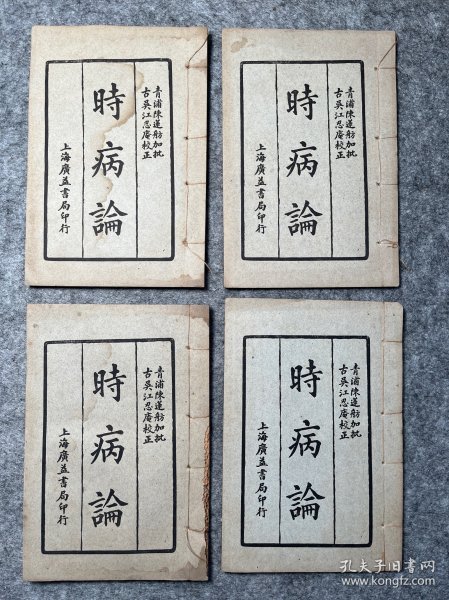 青浦陳蓮舫加批
古吳江忍庵校正
時病論
上海廣益書局印行
青浦陳蓮舫加批
古吳江忍庵校正
時病論
上海廣益書局印行
青浦陳蓮舫加批
古吳江忍庵校正
時病論
上海廣益書局印行
青浦陳蓮舫加批
古吳江忍庵校正
時病論
上海廣益書局印行
孔夫子旧书网
www.kongfz.com